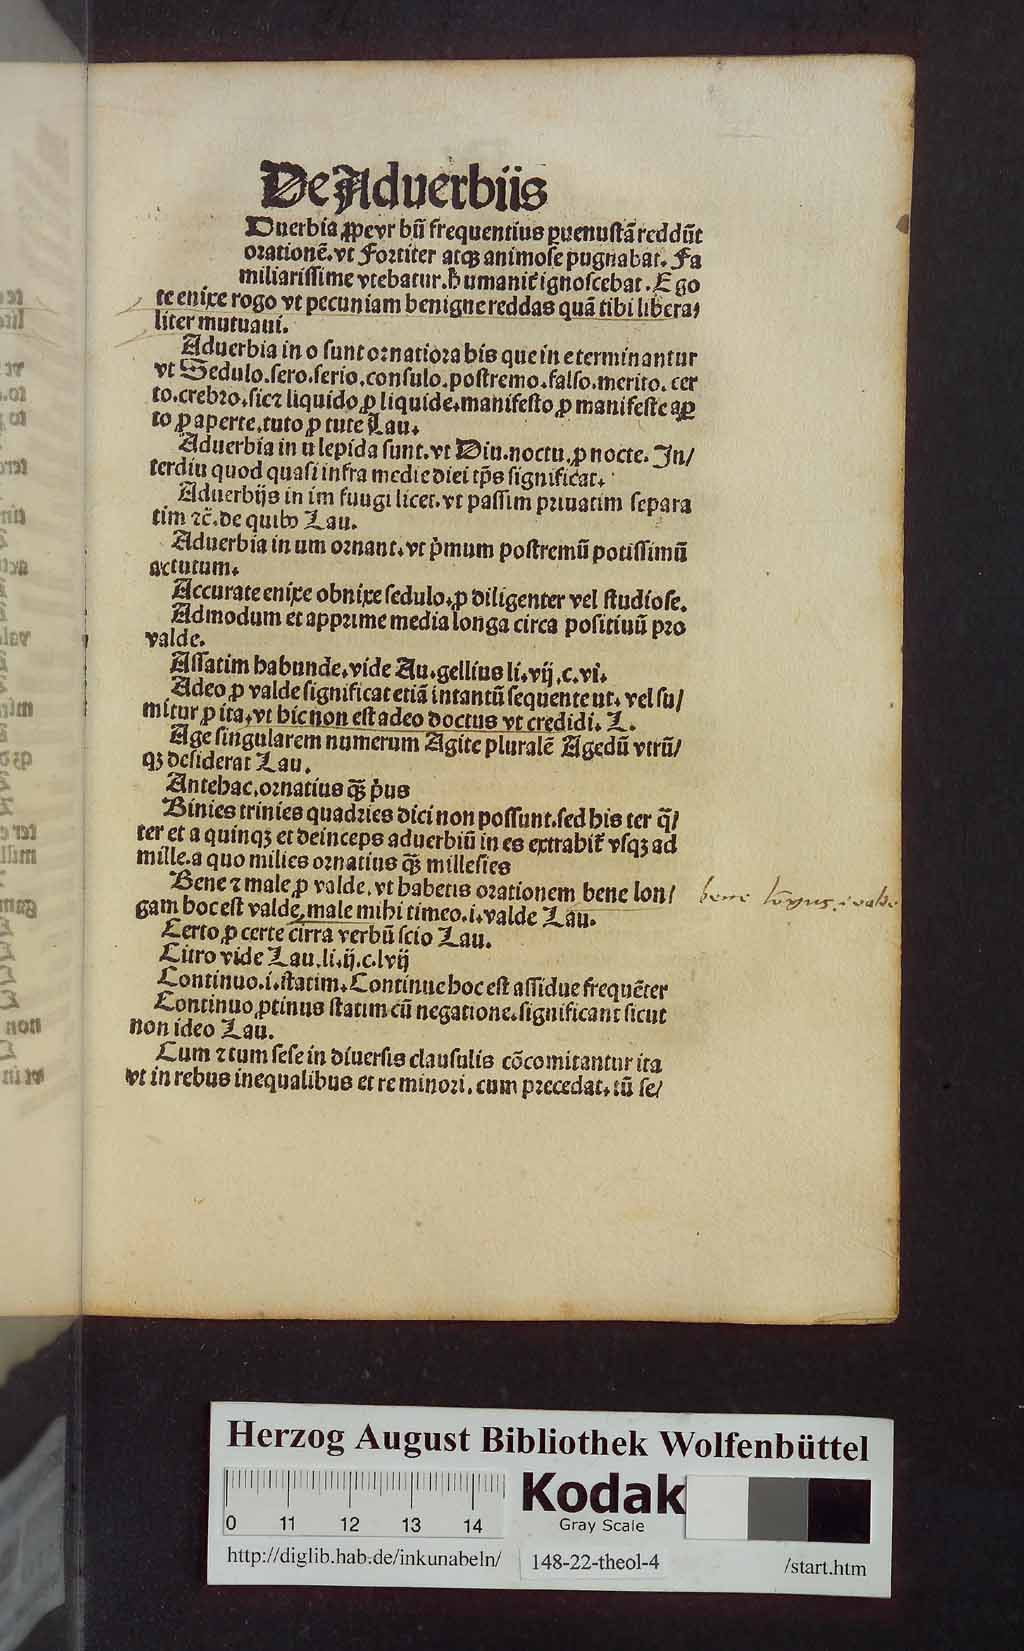 De Aduerbiis
Duerbia ꝓpeyr bii frequentius ꝑuenustā reddūt
orationē. vt Fortiter atqꝫ animose pugnabat. Fa
miliarissime vtebatur. humanit̄ ignoscebat. Ego
te enixe rogo vt pecuniam benigne reddas quā tibi libera/
liter mutuaui.
Aduerbia in o sunt ornatiora his que in e terminantur
vt Sedulo. sero. serio. consulo. postremo. falso. merito. cer
to. crebro. sicꝛ liquido ꝓ liquide. manifesto ꝓ manifeste aꝑ
to ꝓ aperte. tuto ꝓ tute Lau.
Aduerbia in u lepida sunt. vt Diu. noctu. ꝓ nocte. In/
terdiu quod quasi infra medie diei tp̄s significat.
Aduerbijs in im fuugi licet. vt passim priuatim separa
tim ⁊c̄. de quibꝰ Lau.
Aduerbia in um ornant. vt p̄mum postremū potissimū
actutum.
Accurate enixe obnixe sedulo. ꝓ diligenter vel studiose.
Admodum et apprime media longa circa positiuū pro
valde.
Affatim habunde. vide Au. gellius li. vij. c. vi.
Adeo ꝓ valde significat etiā intantū sequente ut. vel su/
mitur ꝓ ita. vt hic non est adeo doctus vt credidi. L.
Age singularem numerum Agite pluralē Agedū vtrū/
qꝫ desiderat Lau.
Antehac. ornatius qꝫ̄ p̄us
Binies trinies quadries dici non possunt. sed bis ter q̄/
ter et a quinqꝫ et deinceps aduerbiū in es extrahit̄ vsqꝫ ad
mille. a quo milies ornatius qꝫ̄ millesies
Bene ⁊ male ꝓ valde. vt habetis orationem bene lon/
gam hoc est valde, male mihi timeo. i. valde Lau.
bene longus .i. valde
Certo ꝓ certe cirra verbū scio Lau.
Citro vide Lau. li. ij. c. lvij
Continuo. i. statim. Continue hoc est assidue frequēter
Continuo ꝓtinus statim cū negatione. significant sicut
non ideo Lau.
Cum ⁊ tum sese in diuersis clausulis cōcomitantur ita
vt in rebus inequalibus et re minori. cum precedat. tū se/
Herzog August Bibliothek Wolfenbüttel
0 11 12 13 14
Kodak
Gray Scale
http://diglib.hab.de/inkunabeln/ 148-22-theol-4 /start.htm